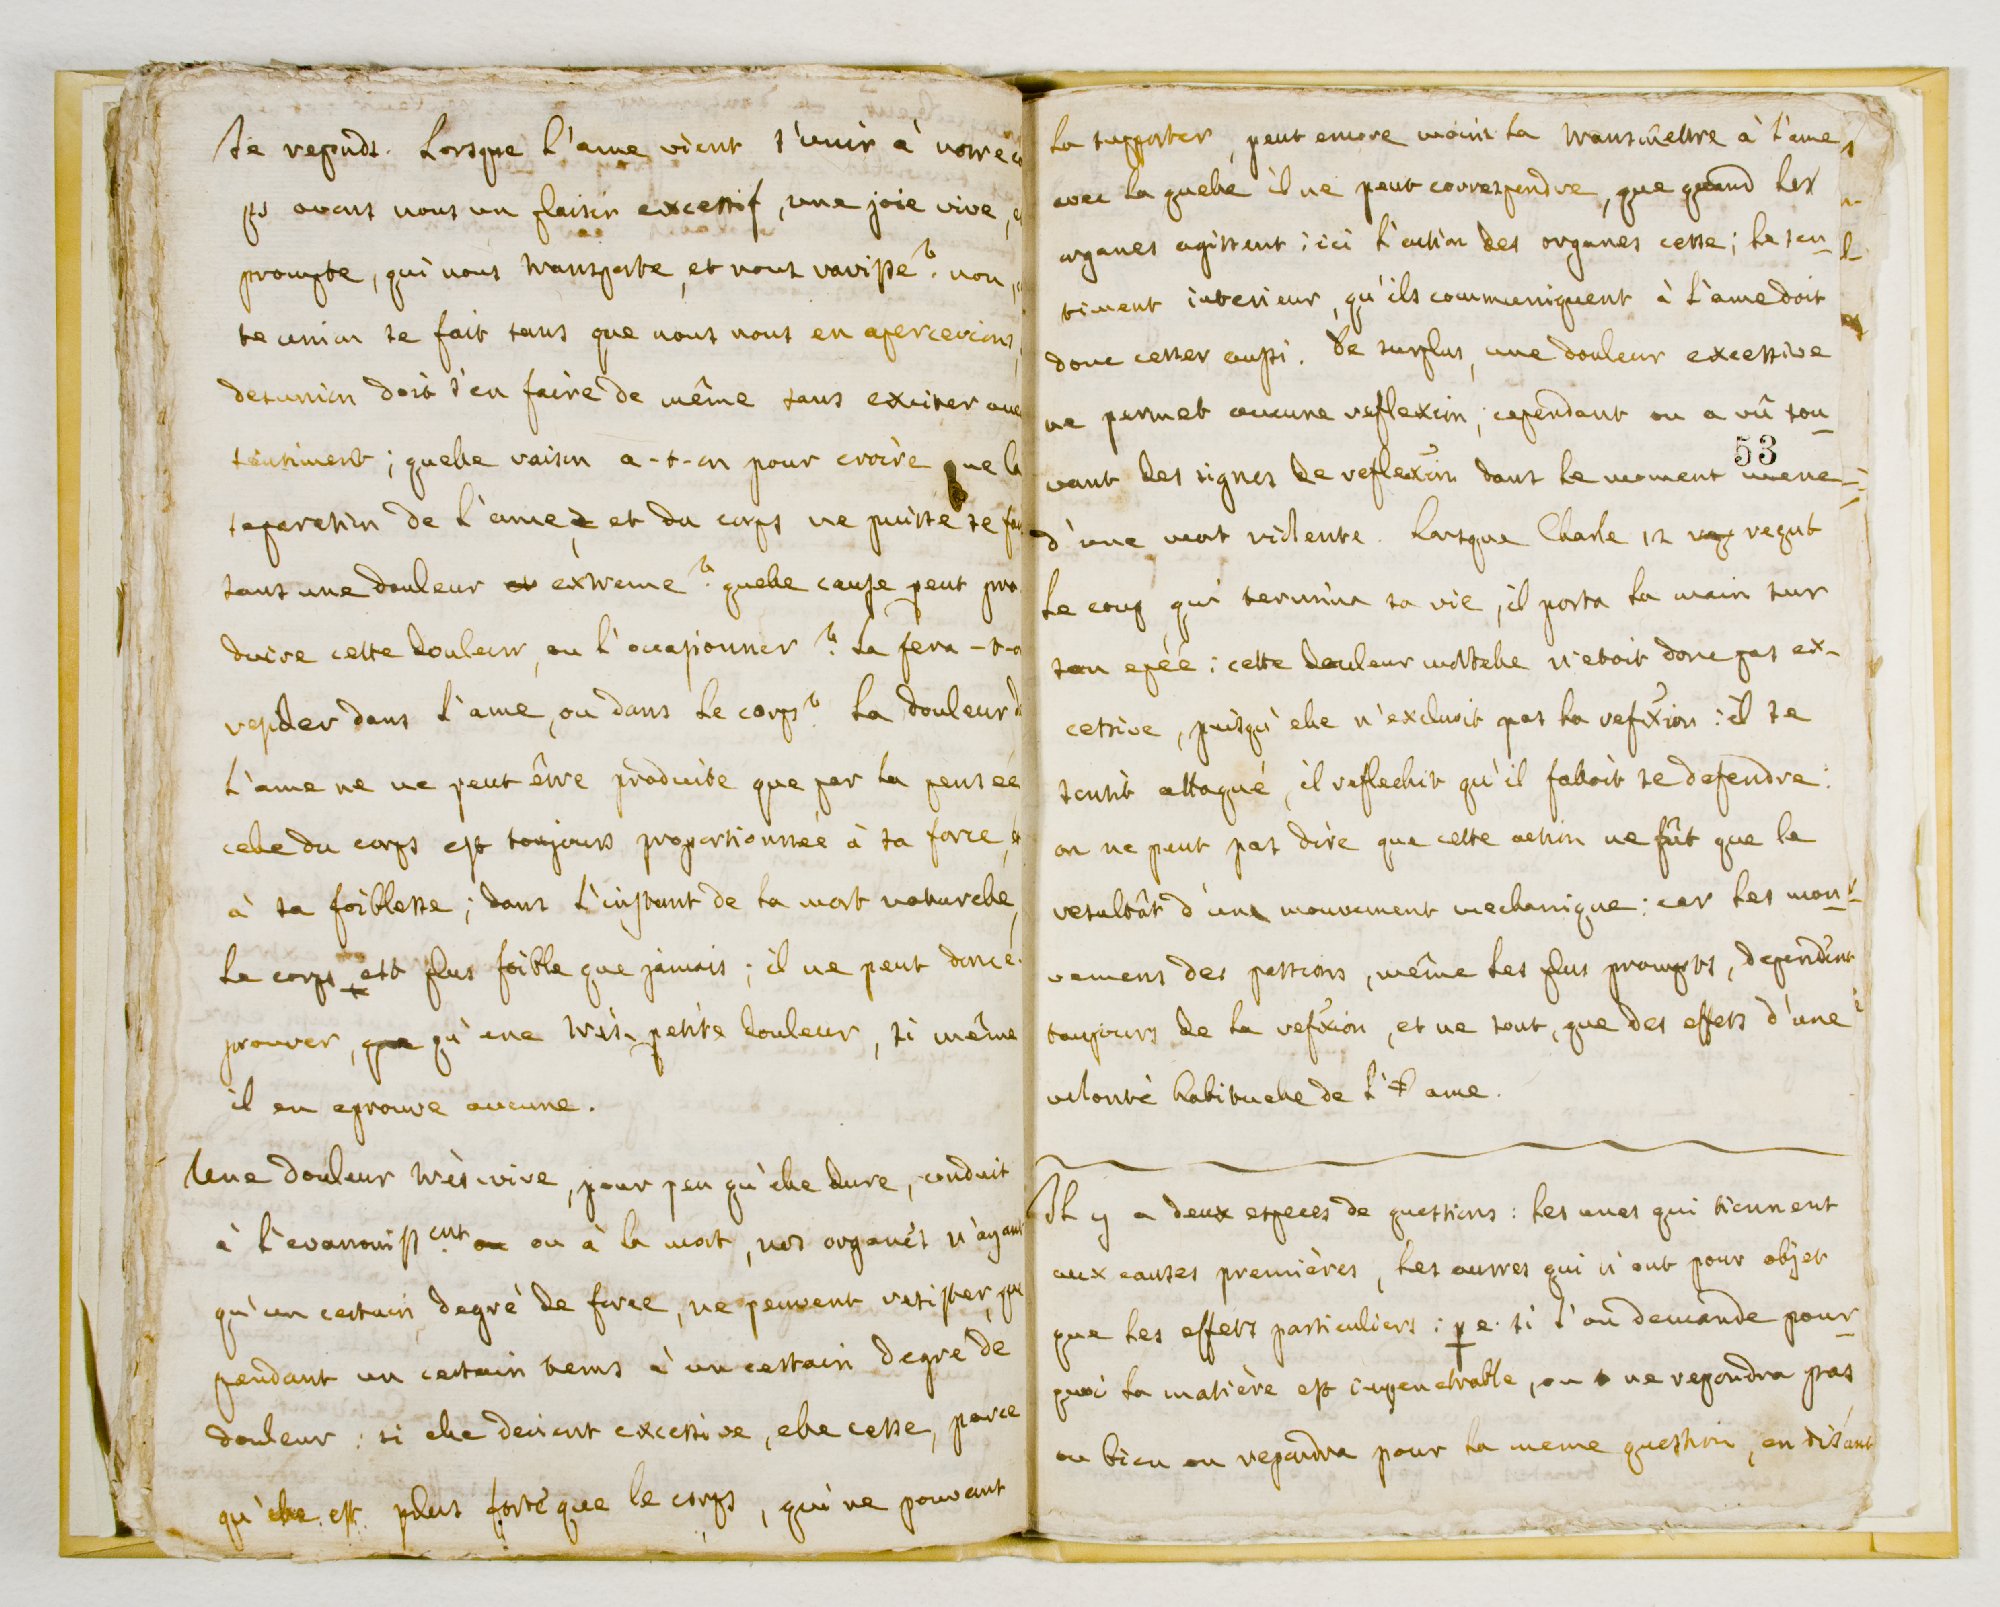 Je reponds. Lorsque l'ame vient s'unir à notre co
ps avons nous un plaisir excessif, une joie vive,
prompte, qui nous transporte, et nous ravisse? non,
te union se fait sans que nous nous en apercevions,
desunion doit s'en faire de même sans exciter auc
sentiment; quelle raison a-t-on pour croire que la
separation de l'ame, et du corps ne puisse se fai
sans une douleur extreme? quelle cause peut pro
duire cette douleur, ou l'occasionner? la fera-t-o
resider dans l'ame, ou dans le corps? la douleur d
l'ame ne ne peut être produite que par la pensée
celle du corps est toujours proportionnée à sa force, e
à sa foiblesse; dans l'instant de la mort naturelle,
le corps est plus foible que jamais; il ne peut donc é
prouver, que qu'une très-petite douleur, si même
il en eprouve aucune.
Une douleur très-vive, pour peu qu'elle dure, conduit
à l'evanouissent ou ou à la mort, nos organes n'ayant
qu'un certain degré de force, ne peuvent resister, que
pendant un certain tems à un certain degré de
douleur: si elle devient excessive, elle cesse, parce
qu'elle est plus forte que le corps, qui ne pouvant
la supporter, peut encore moins la transmettre à l'ame,
avec la quelle il ne peut correspendre, que quand les
organes agissent: ici l'action des organes cesse; le sen-
timent interieur, qu'ils communiquent à l'ame doit
donc cesser aussi. de surplus, une douleur excessive
ne permet aucune reflexion; cependant on a vû sou-
53
vant des signes de reflexion dans le moment meme
d'une mort violente. Lorsque Charle 12 reçut
le coup, qui termina sa vie, il porta la main sur
son epée: cette douleur mortelle n'etoit donc pas ex-
cessive, puisqu'elle n'excluoit pas la reflxion: il se
sentit attaqué, il reflechit qu'il falloit se defendre:
on ne peut pas dire que cette action ne fût que le
resultât d'un mouvement mechanique: car les mou-
vemens des passions, même les plus prompts, dependent
toujours de la reflxion, et ne sont, que des effets d'une
volonté habituelle de l'ame.
Il y a deux especes de questions: les unes qui tiennent
aux causes premières, les autres qui n'ont pour objet
que les effets particuliers: p e. si l'on demande pour-
quoi la matière est impenetrable, on ne repondra pas
ou bien on repondra pour la meme question, en disant